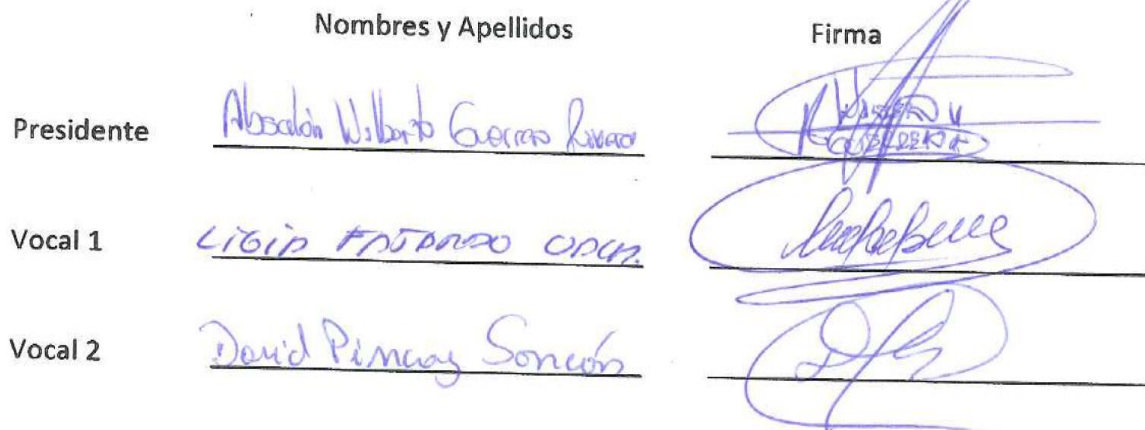 Nombres y Apellidos Firma
Presidente Absalón Wilberto Guerrero
Vocal 1 LIGIA FAJARDO
Vocal 2 David Pincay Sancón